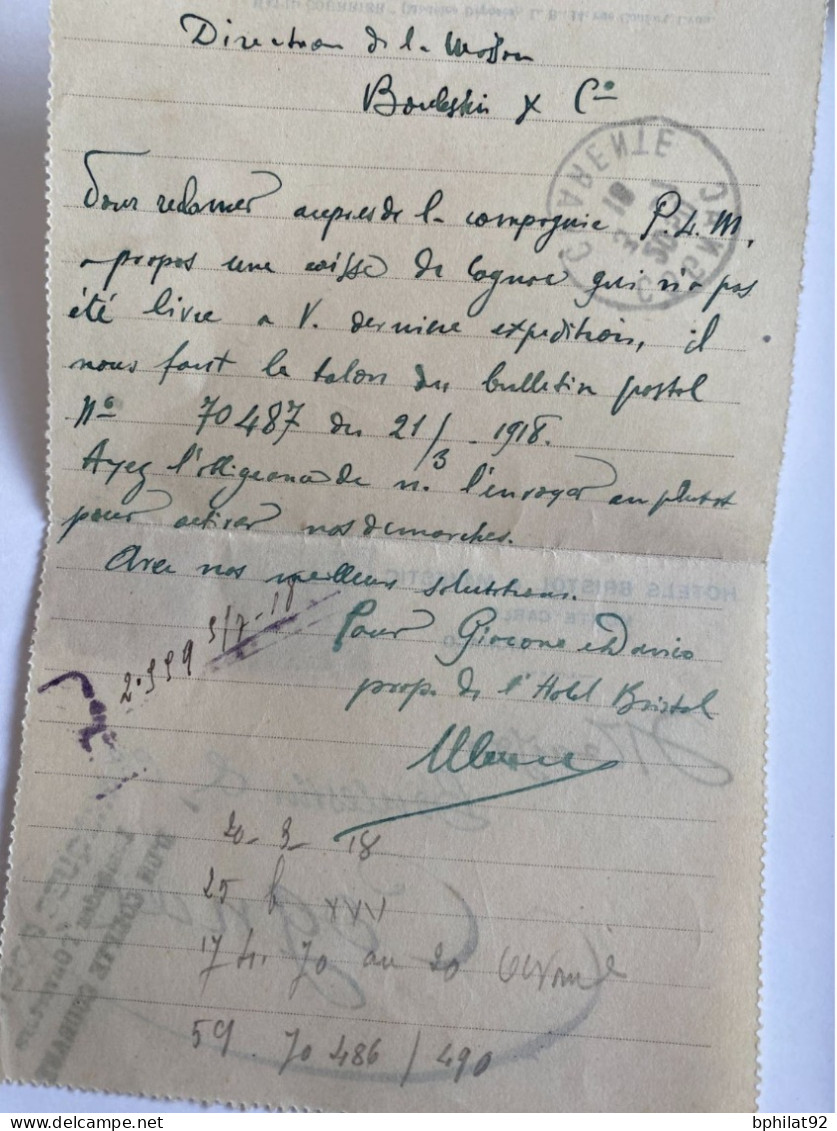 Direction de la Maison
Boulestin & Cie
Pour reclamer aupres de la compagnie P.L.M,
a propos une caisse de Cognac qui n'a pas
été livre a V. derniere expedition, il
nous faut le talon du bulletin postal
No 70487 du 21/3 - 1918.
Ayez l'obligeance de n. l'envoyer au plutot
pour activer nos demarches.
Avec nos meilleurs salutations.
Pour Giacone et Danico
prop. de l'Hotel Bristol
20-3-18
25 b XVV
70 au 20
59. 70486/490
CHARENTE
COGNAC
HOTELS BRISTOL & MAJESTIC
Cognac
bphilat92